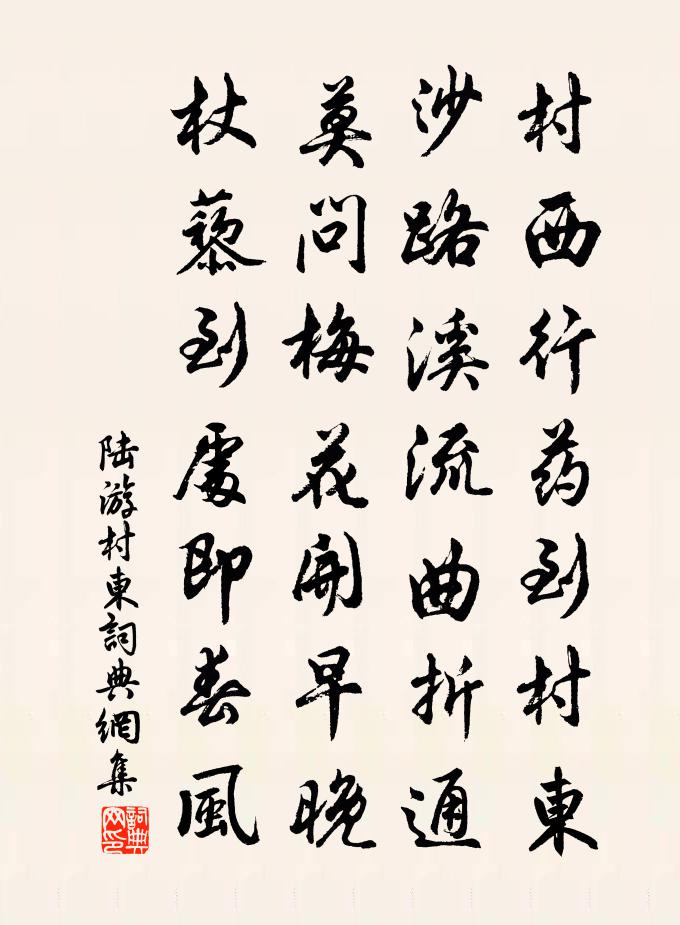 村西行药到村東
沙路溪流曲折通
莫問梅花開早晚
杖藜到處即春風
陆游村東詞典網集
詞典網印